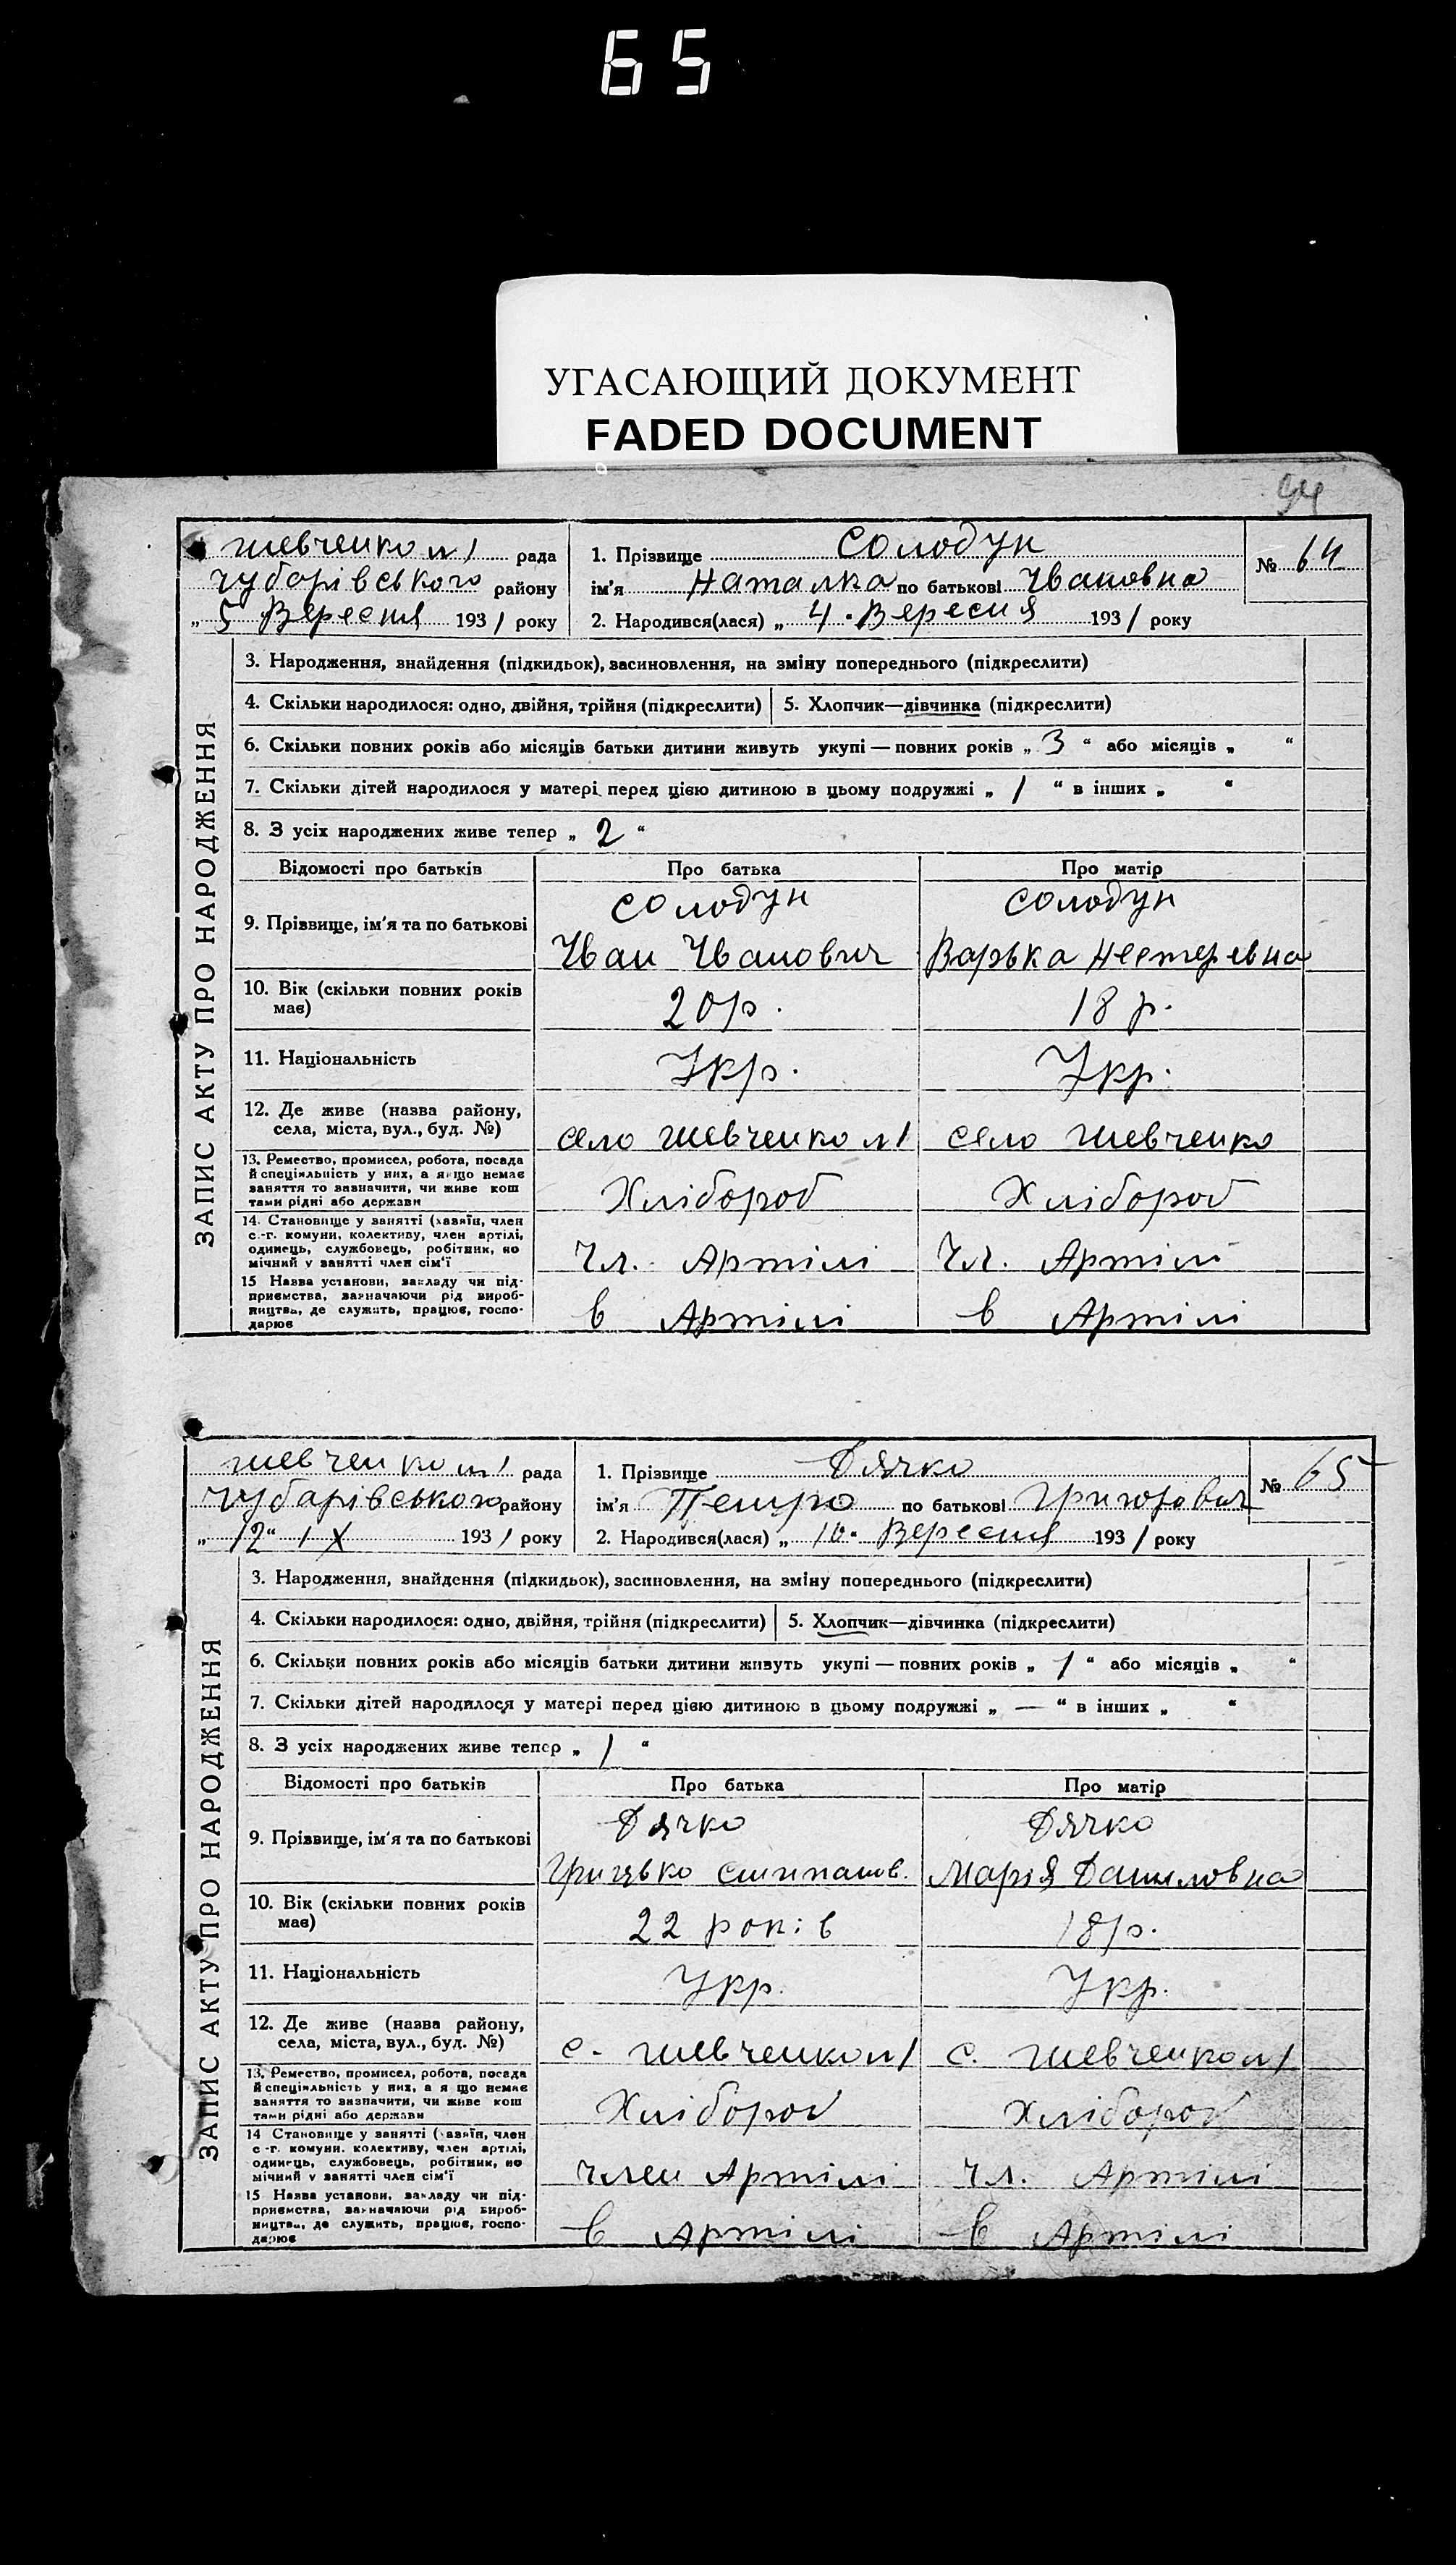 65
УГАСАЮЩИЙ ДОКУМЕНТ
FADED DOCUMENT
94
ЗАПИС АКТУ ПРО НАРОДЖЕННЯ
Шевченко №1 рада
Чубарівського району
„ 5 Вересня 1931 року
1. Прізвище Солодун
ім'я Наталка по батькові Ивановна
2. Народився(лася) „ 4 " Вересня 1931 року
№ 64
3. Народження, знайдення (підкидьок), засиновлення, на зміну попереднього (підкреслити)
4. Скільки народилося: одно, двійня, трійня (підкреслити) 5. Хлопчик—дівчинка (підкреслити)
6. Скільки повних років або місяців батьки дитини живуть укупі — повних років „ 3 “ або місяців „ “
7. Скільки дітей народилося у матері перед цією дитиною в цьому подружжі „ 1 “ в інших „ “
8. З усіх народжених живе тепер „ 2 “
Відомості про батьків Про батька Про матір
9. Прізвище, ім'я та по батькові
Солодун Солодун
Иван Иванович Варька Нестеревна
10. Вік (скільки повних років має) 20 р. 18 р.
11. Національність Укр. Укр.
12. Де живе (назва району,
села, міста, вул., буд. №) село Шевченко №1 село Шевченко
13. Ремество, промисел, робота, посада
й спеціяльність у них, а якщо немає
заняття то зазначити, чи живе кош
тами рідні або держави
Хлібороб Хлібороб
14. Становище у занятті (хазяїн, член
с.-г. комуни, колективу, член артілі,
одинець, службовець, робітник, по
мічний у занятті член сім'ї
Чл. Артілі Чл. Артілі
15 Назва установи, закладу чи під-
приємства, зазначаючи рід вироб-
ництва, де служить, працює, госпо-
дарює
в Артілі в Артілі
ЗАПИС АКТУ ПРО НАРОДЖЕННЯ
Шевченко №1 рада
Чубарівського району
„ 12 “ IX 1931 року
1. Прізвище Дячко
ім'я Петро по батькові Григорович
2. Народився(лася) „ 10 " Вересня 1931 року
№ 65
3. Народження, знайдення (підкидьок), засиновлення, на зміну попереднього (підкреслити)
4. Скільки народилося: одно, двійня, трійня (підкреслити) 5. Хлопчик—дівчинка (підкреслити)
6. Скільки повних років або місяців батьки дитини живуть укупі — повних років „ 1 “ або місяців „ “
7. Скільки дітей народилося у матері перед цією дитиною в цьому подружжі „ — “ в інших „ “
8. З усіх народжених живе тепер „ 1 “
Відомості про батьків Про батька Про матір
9. Прізвище, ім'я та по батькові
Дячко Дячко
Грицько Стипанов. Марія Даниловна
10. Вік (скільки повних років має) 22 років 18 р.
11. Національність Укр. Укр.
12. Де живе (назва району,
села, міста, вул., буд. №) с. Шевченко №1 с. Шевченко №1
13. Ремество, промисел, робота, посада
й спеціяльність у них, а якщо немає
заняття то зазначити, чи живе кош
тами рідні або держави
Хлібороб Хлібороб
14 Становище у занятті (хазяїн, член
с-г. комуни, колективу, член артілі,
одинець, службовець, робітник, по
мічний у занятті член сім'ї
член Артілі Чл. Артілі
15 Назва установи, закладу чи під-
приємства, зазначаючи рід вироб-
ництва, де служить, працює, госпо-
дарює
в Артілі в Артілі